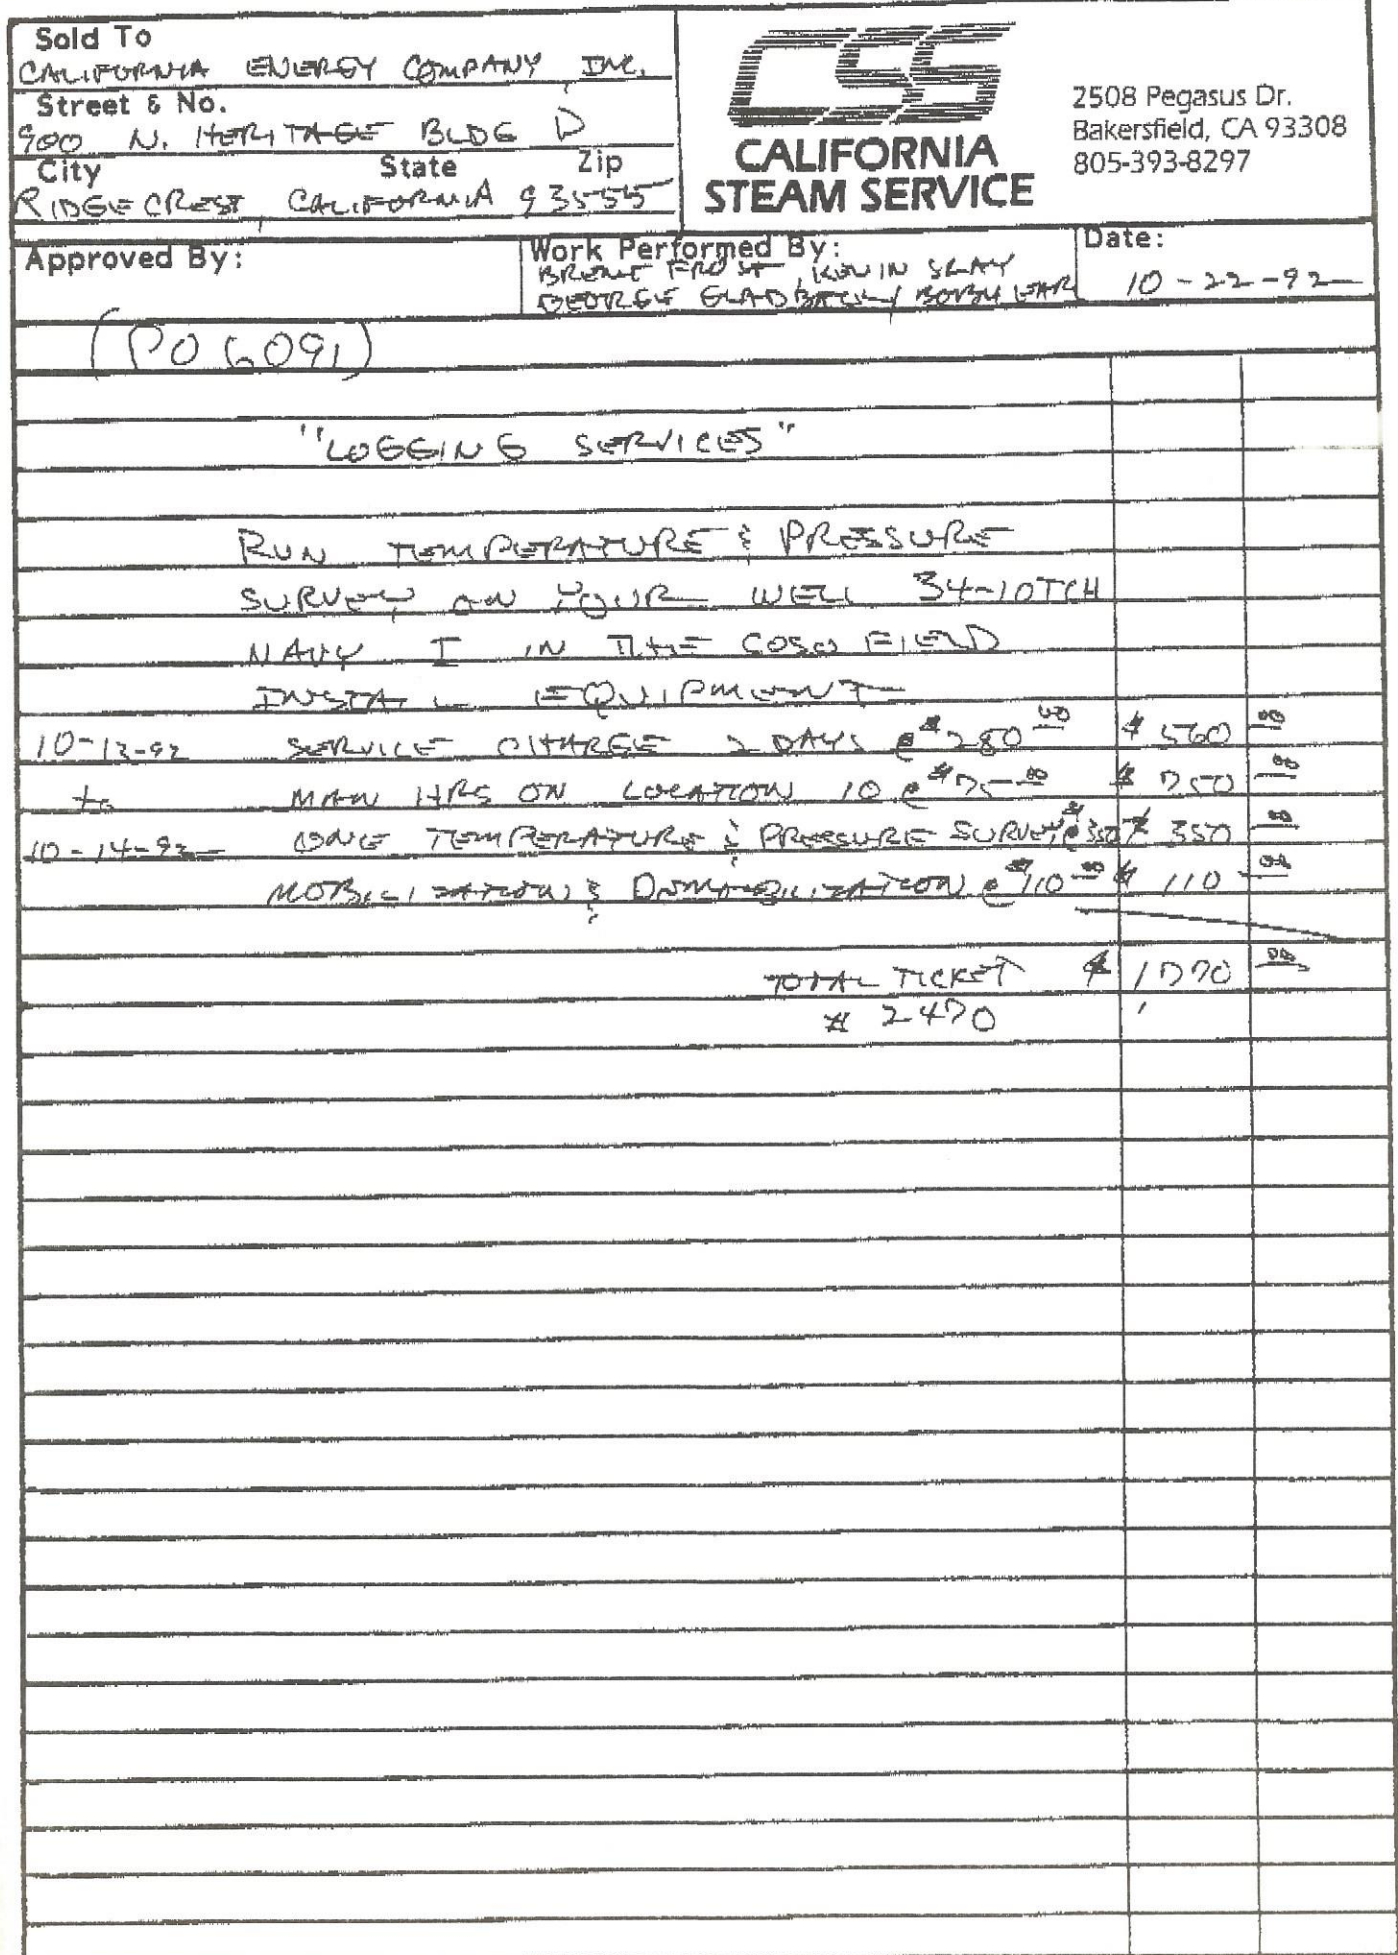 Sold To
CALIFORNIA ENERGY COMPANY INC.
Street & No.
900 N. HERITAGE BLDG D
City State Zip
RIDGECREST, CALIFORNIA 93555
CSS
CALIFORNIA
STEAM SERVICE
2508 Pegasus Dr.
Bakersfield, CA 93308
805-393-8297
Approved By:
Work Performed By:
FROST, KEVIN SLAY
GEORGE BOBBY
Date:
10-22-92
(PO 6091)
"LOGGING SERVICES"
RUN TEMPERATURE & PRESSURE
SURVEY ON YOUR WELL 34-10TCH
NAVY I IN THE COSO FIELD
INSTALL EQUIPMENT
10-13-92 SERVICE CHARGE 2 DAYS @ $280 00 $ 560 00
to MAN HRS ON LOCATION 10 @ $75 00 $ 750 00
10-14-92 ONE TEMPERATURE & PRESSURE SURVEY @ $350 $ 350 00
MOBILIZATION & DEMOBILIZATION @ $110 00 $ 110 00
TOTAL TICKET $ 1,770 00
# 2470